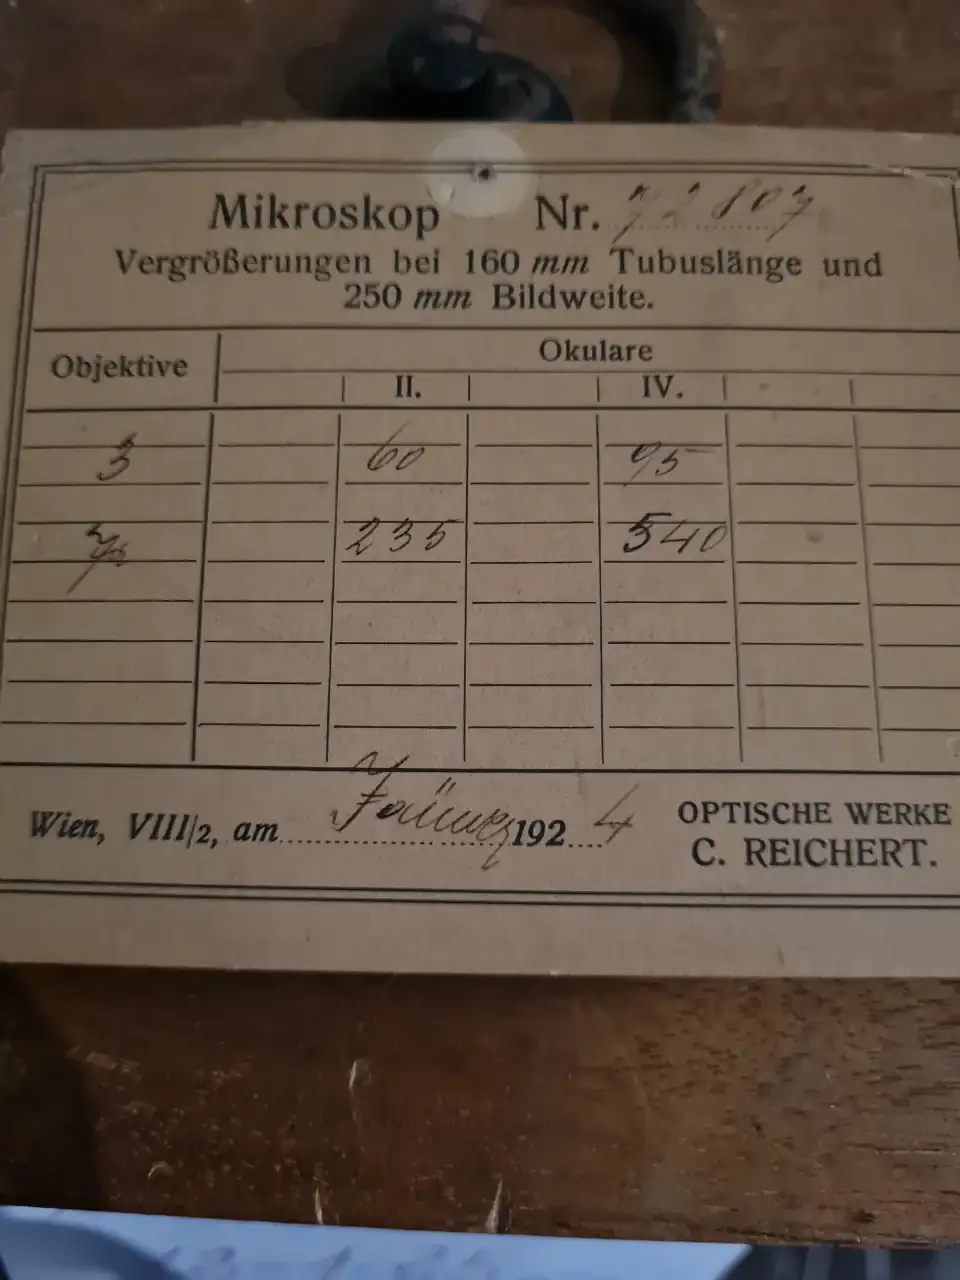 Mikroskop Nr. 72807
Vergrößerungen bei 160 mm Tubuslänge und
250 mm Bildweite.
Objektive Okulare
II. IV.
3 60 95
235 540
Wien, VIII/2, am Jänner 1924
OPTISCHE WERKE
C. REICHERT.